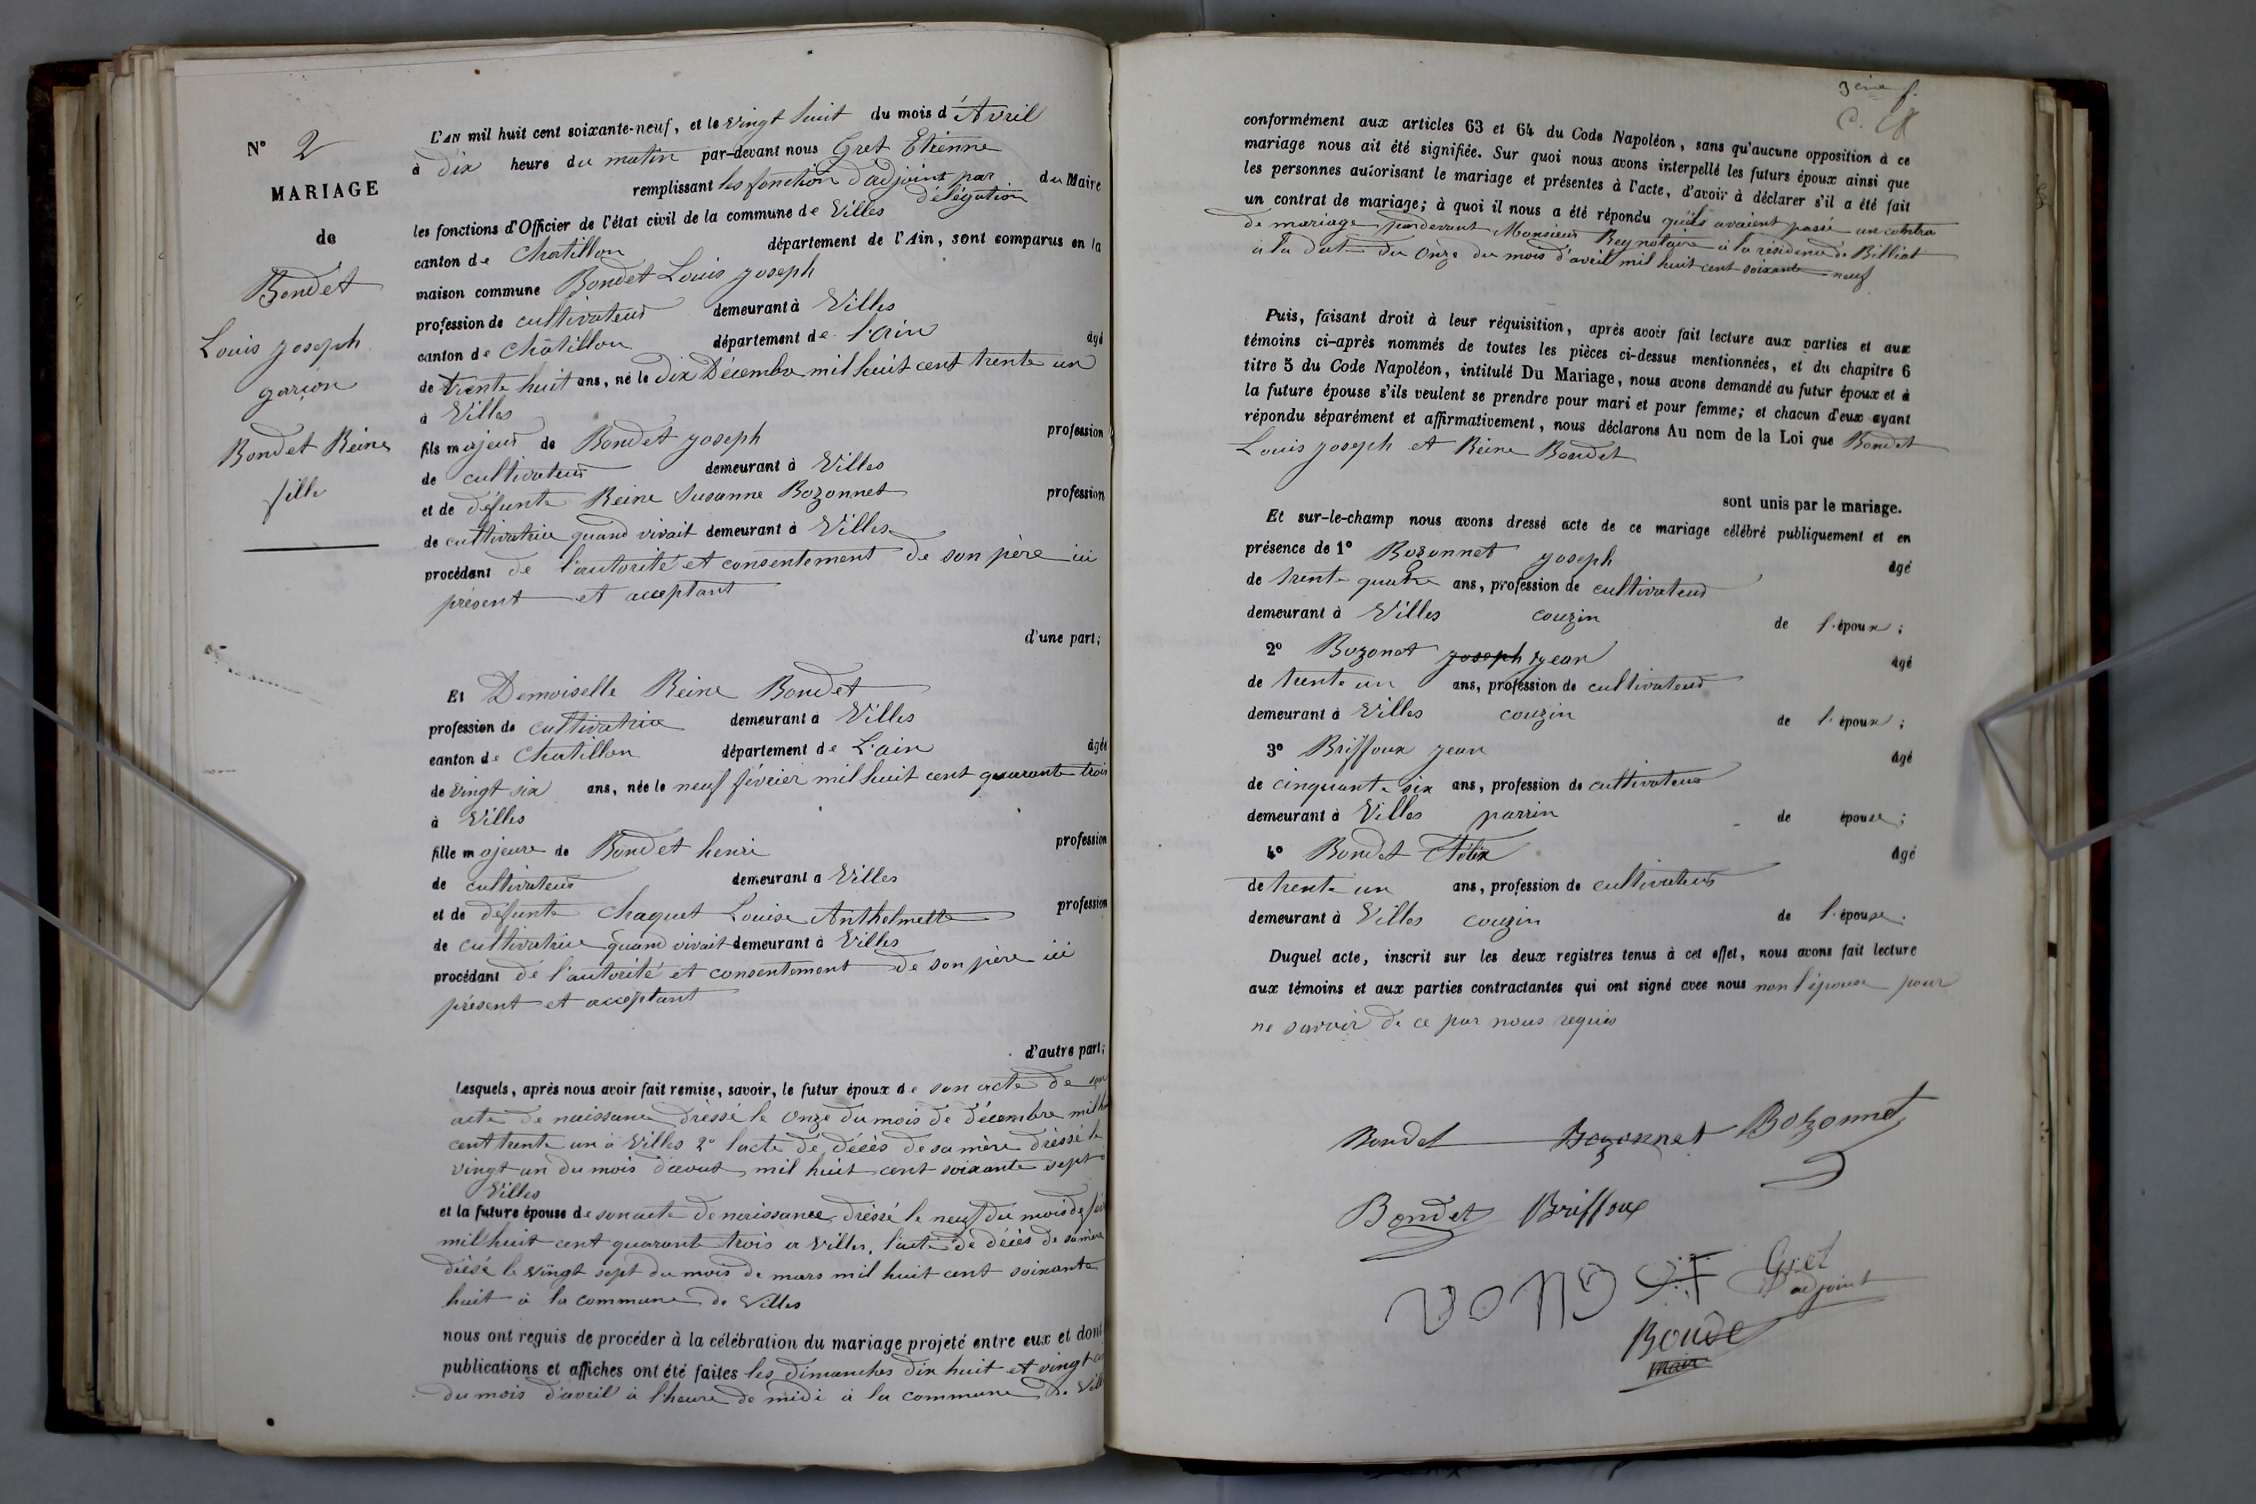 N° 2
MARIAGE
de
Bondet
Louis joseph
garçon
Bondet Reine
fille
L'AN mil huit cent soixante-neuf, et le vingt huit du mois d'Avril
à dix heure du matin par-devant nous Gret Etienne
remplissant les fonction d'adjoint par délégation du Maire
les fonctions d'Officier de l'état civil de la commune de Villes
canton de Chatillon département de l'Ain, sont comparus en la
maison commune Bondet Louis joseph
profession de cultivateur demeurant à Villes
canton de Châtillon département de l'ain âgé
de trente huit ans, né le dix Décembre mil huit cent trente un
à Villes
fils majeur de Bondet joseph profession
de cultivateur demeurant à Villes
et de défunte Reine Susanne Bozonnet profession
de cultivatrice quand vivait demeurant à Villes
procédant de l'autorité et consentement de son père ici
présent et acceptant
d'une part;
Et Demoiselle Reine Bondet
profession de cultivatrice demeurant à Villes
canton de Chatillon département de L'ain âgée
de vingt six ans, née le neuf février mil huit cent quarante trois
à Villes
fille majeure de Bondet henri profession
de cultivateur demeurant à Villes
et de défunte Chaquet Louise Anthelmette profession
de cultivatrice quand vivait demeurant à Villes
procédant de l'autorité et consentement de son père ici
présent et acceptant
d'autre part;
Lesquels, après nous avoir fait remise, savoir, le futur époux de son acte de son
acte de naissance dréssé le onze du mois de décembre mil
cent trente un à Villes 2° l'acte de décès de sa mère dréssé le
vingt un du mois d'aout mil huit cent soixante sept
Villes
et la future épouse de son acte de naissance dréssé le neuf du mois de
mil huit cent quarante trois a Villes, l'acte de décès de sa mère
dréssé le vingt sept du mois de mars mil huit cent soixante
huit à la commune de Villes
nous ont requis de procéder à la célébration du mariage projeté entre eux et dont
publications et affiches ont été faites les dimanches dix huit et vingt
du mois d'avril à l'heure de midi à la commune de
3ème f.
conformément aux articles 63 et 64 du Code Napoléon, sans qu'aucune opposition à ce
mariage nous ait été signifiée. Sur quoi nous avons interpellé les futurs époux ainsi que
les personnes autorisant le mariage et présentes à l'acte, d'avoir à déclarer s'il a été fait
un contrat de mariage; à quoi il nous a été répondu qu'ils avaient passé un contra
de mariage pardevant Monsieur Rey notaire à la résidence de Billiat
à la date du onze du mois d'avril mil huit cent soixante neuf
Puis, faisant droit à leur réquisition, après avoir fait lecture aux parties et aux
témoins ci-après nommés de toutes les pièces ci-dessus mentionnées, et du chapitre 6
titre 5 du Code Napoléon, intitulé Du Mariage, nous avons demandé au futur époux et à
la future épouse s'ils veulent se prendre pour mari et pour femme; et chacun d'eux ayant
répondu séparément et affirmativement, nous déclarons Au nom de la Loi que Bondet
Louis joseph et Reine Bondet
sont unis par le mariage.
Et sur-le-champ nous avons dressé acte de ce mariage célébré publiquement et en
présence de 1° Bozonnet joseph âgé
de trente quatre ans, profession de cultivateur
demeurant à Villes couzin de l'époux;
2° Bozonet joseph jean âgé
de trente un ans, profession de cultivateur
demeurant à Villes couzin de l'époux;
3° Briffoux jean âgé
de cinquante six ans, profession de cultivateur
demeurant à Villes parrin de épouse;
4° Bondet Félix âgé
de trente un ans, profession de cultivateur
demeurant à Villes couzin de l'épouse.
Duquel acte, inscrit sur les deux registres tenus à cet effet, nous avons fait lecture
aux témoins et aux parties contractantes qui ont signé avec nous non l'épouse pour
ne savoir de ce par nous requis
Bondet Bozonnet Bozonnet
Bondet Briffoux
Gret
adjoint
Bonde
Maire